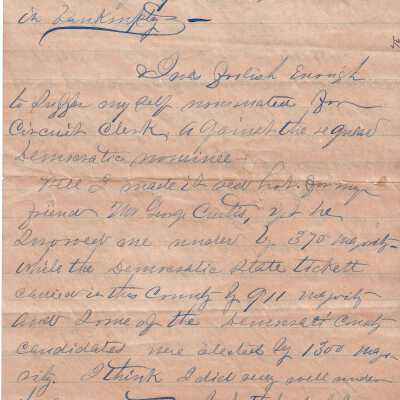 in Bankruptcy —
I was foolish Enough
to Suffer my self nominated for
Circuit Clerk, against the regular
Democratic nominee.
Well I made it red hot for my
friend Mr George Curtis, yet he
Snowed me under by 370 majority
while the Democratic State tickett
carried in this County by 911 majority
and Some of the Democrat County
candidates were elected by 1300 majo-
rity. I think I did very well under